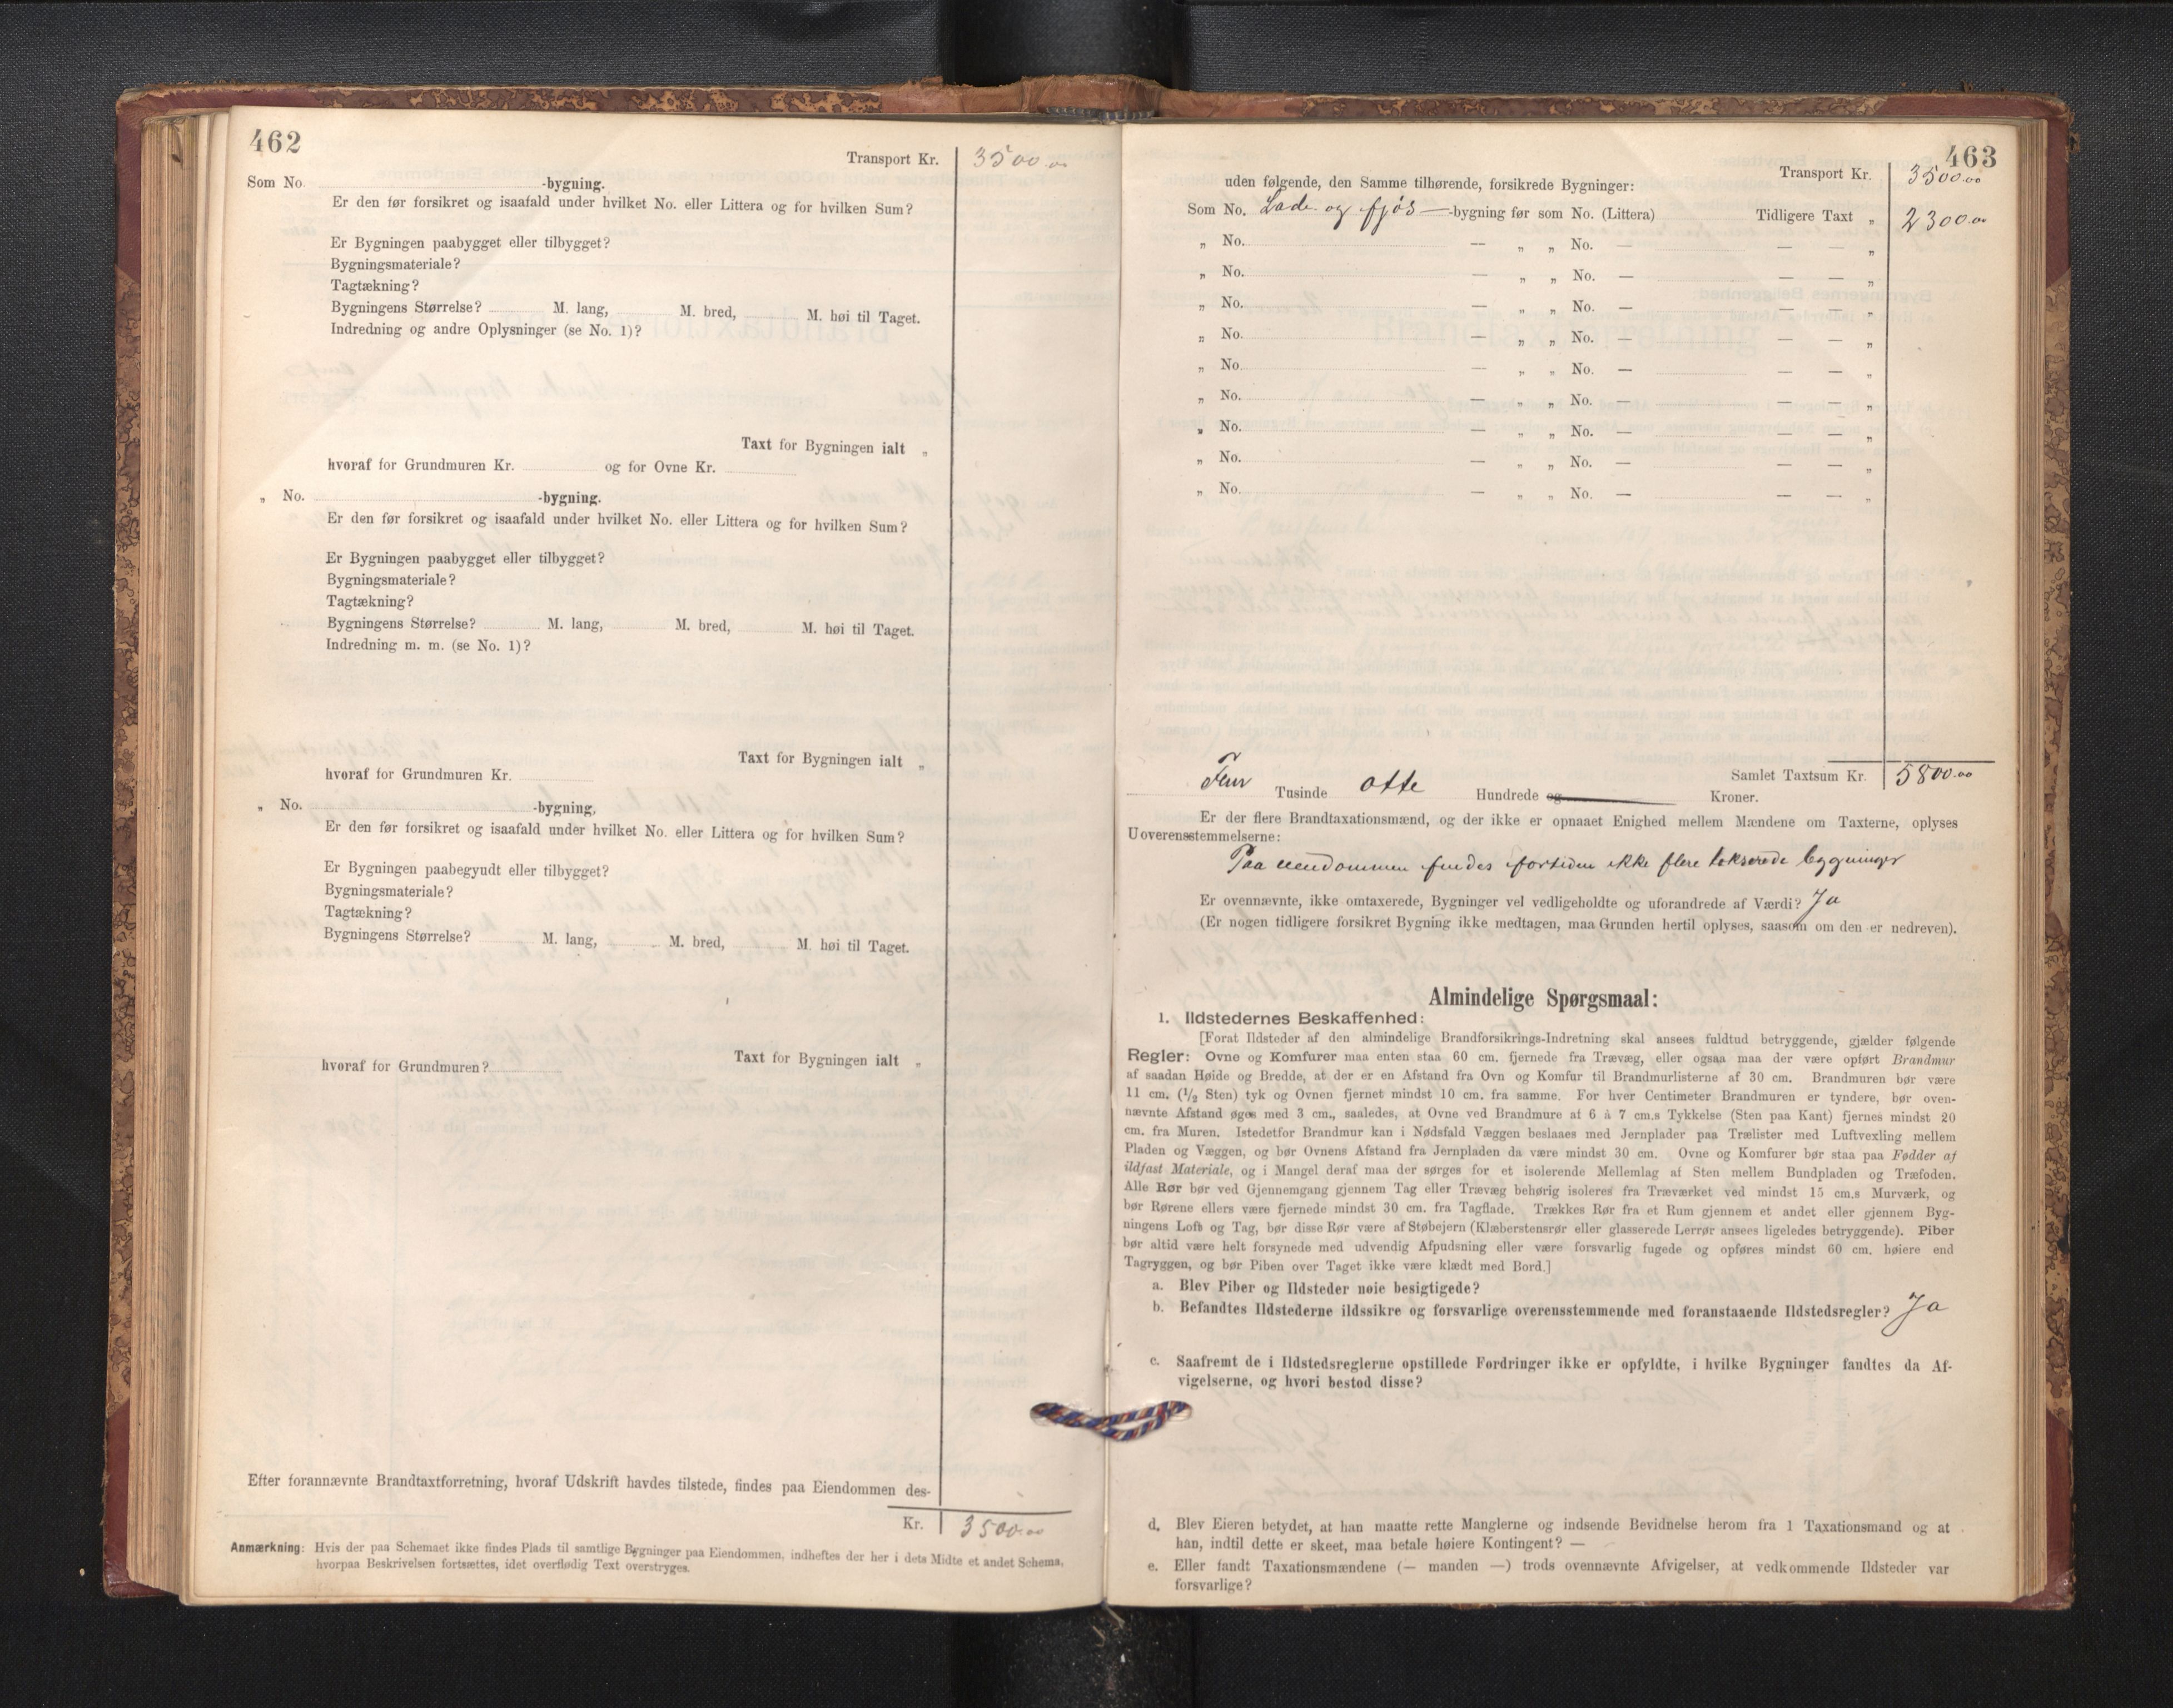 462
Transport Kr. 3500.00
Som No. -bygning.
Er den før forsikret og isaafald under hvilket No. eller Littera og for hvilken Sum?
Er Bygningen paabygget eller tilbygget?
Bygningsmateriale?
Tagtækning?
Bygningens Størrelse? M. lang, M. bred, M. høi til Taget.
Indredning og andre Oplysninger (se No. 1)?
Taxt for Bygningen ialt „
hvoraf for Grundmuren Kr. og for Ovne Kr.
„ No. -bygning.
Er den før forsikret og isaafald under hvilket No. eller Littera og for hvilken Sum?
Er Bygningen paabygget eller tilbygget?
Bygningsmateriale?
Tagtækning?
Bygningens Størrelse? M. lang, M. bred, M. høi til Taget.
Indredning m. m. (se No. 1)?
Taxt for Bygningen ialt „
hvoraf for Grundmuren Kr.
„ No. -bygning,
Er den før forsikret og isaafald under hvilket No. eller Littera og for hvilken Sum?
Er Bygningen paabegyndt eller tilbygget?
Bygningsmateriale?
Tagtækning?
Bygningens Størrelse? M. lang, M. bred, M. høi til Taget.
Taxt for Bygningen ialt „
hvoraf for Grundmuren?
Efter forannævnte Brandtaxtforretning, hvoraf Udskrift havdes tilstede, findes paa Eiendommen des-
Kr. 3500.00
Anmærkning: Hvis der paa Schemaet ikke findes Plads til samtlige Bygninger paa Eiendommen, indheftes der her i dets Midte et andet Schema,
hvorpaa Beskrivelsen fortsættes, idet overflødig Text overstryges.
463
Transport Kr. 3500.00
uden følgende, den Samme tilhørende, forsikrede Bygninger:
Som No. Lade og fjøs -bygning før som No. (Littera) Tidligere Taxt „ 2300.00
„ No. — „ „ No. — — — „
„ No. — „ „ No. — — — „
„ No. — „ „ No. — — — „
„ No. — „ „ No. — — — „
„ No. — „ „ No. — — — „
„ No. — „ „ No. — — — „
„ No. — „ „ No. — — — „
„ No. — „ „ No. — — — „
„ No. — „ „ No. — — — „
Samlet Taxtsum Kr. 5800.00
Fem Tusinde otte Hundrede og Kroner.
Er der flere Brandtaxationsmænd, og der ikke er opnaaet Enighed mellem Mændene om Taxterne, oplyses
Uoverensstemmelserne:
Paa eiendommen findes fortiden ikke flere takserede bygninger
Er ovennævnte, ikke omtaxerede, Bygninger vel vedligeholdte og uforandrede af Værdi? Ja
(Er nogen tidligere forsikret Bygning ikke medtagen, maa Grunden hertil oplyses, saasom om den er nedreven).
Almindelige Spørgsmaal:
1. Ildstedernes Beskaffenhed:
[Forat Ildsteder af den almindelige Brandforsikrings-Indretning skal ansees fuldtud betryggende, gjælder følgende
Regler: Ovne og Komfurer maa enten staa 60 cm. fjernede fra Trævæg, eller ogsaa maa der være opført Brandmur
af saadan Høide og Bredde, at der er en Afstand fra Ovn og Komfur til Brandmurlisterne af 30 cm. Brandmuren bør være
11 cm. (1/2 Sten) tyk og Ovnen fjernet mindst 10 cm. fra samme. For hver Centimeter Brandmuren er tyndere, bør oven-
nævnte Afstand øges med 3 cm., saaledes, at Ovne ved Brandmure af 6 à 7 cm.s Tykkelse (Sten paa Kant) fjernes mindst 20
cm. fra Muren. Istedetfor Brandmur kan i Nødsfald Væggen beslaaes med Jernplader paa Trælister med Luftvexling mellem
Pladen og Væggen, og bør Ovnens Afstand fra Jernpladen da være mindst 30 cm. Ovne og Komfurer bør staa paa Fødder af
ildfast Materiale, og i Mangel deraf maa der sørges for et isolerende Mellemlag af Sten mellem Bundpladen og Træfoden.
Alle Rør bør ved Gjennemgang gjennem Tag eller Trævæg behørig isoleres fra Træværket ved mindst 15 cm.s Murværk, og
bør Rørene ellers være fjernede mindst 30 cm. fra Tagflade. Trækkes Rør fra et Rum gjennem et andet eller gjennem Byg-
ningens Loft og Tag, bør disse Rør være af Støbejern (Klæberstensrør eller glasserede Lerrør ansees ligeledes betryggende). Piber
bør altid være helt forsynede med udvendig Afpudsning eller være forsvarlig fugede og opføres mindst 60 cm. høiere end
Tagryggen, og bør Piben over Taget ikke være klædt med Bord.]
a. Blev Piber og Ildsteder nøie besigtigede?
b. Befandtes Ildstederne ildssikre og forsvarlige overensstemmende med foranstaaende Ildstedsregler? Ja
c. Saafremt de i Ildstedsreglerne opstillede Fordringer ikke er opfyldte, i hvilke Bygninger fandtes da Af-
vigelserne, og hvori bestod disse?
d. Blev Eieren betydet, at han maatte rette Manglerne og indsende Bevidnelse herom fra 1 Taxationsmand og at
han, indtil dette er skeet, maa betale høiere Kontingent? —
e. Eller fandt Taxationsmændene (— manden —) trods ovennævnte Afvigelser, at vedkommende Ildsteder var
forsvarlige?